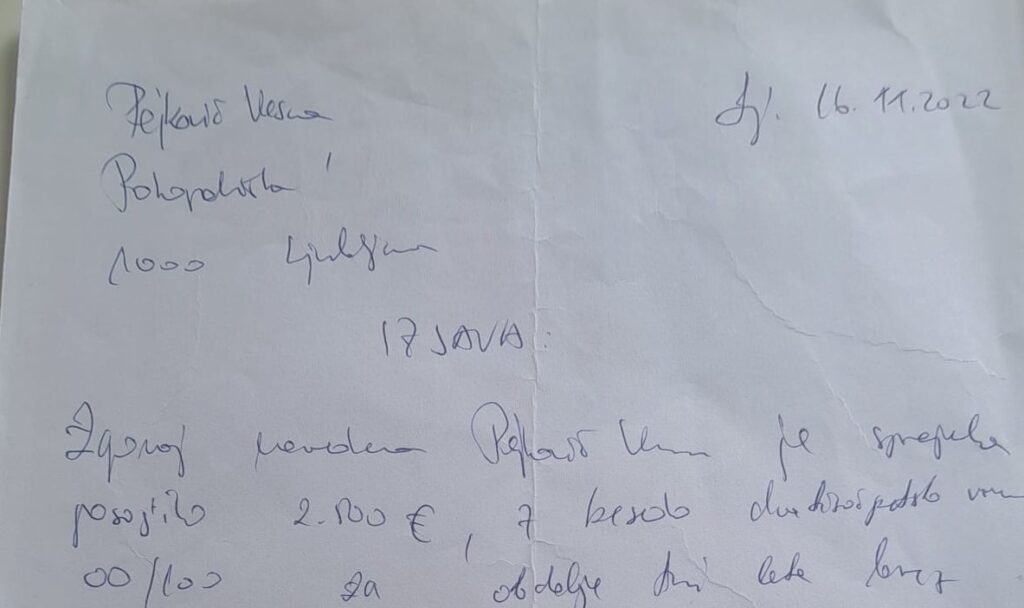 Pejković Vesna
Lj. 16.11.2022
1000 Ljubljana
IZJAVA:
Zgoraj navedena Pejković Vesna je sprejela
posojilo 2.500 €, z besedo dvatisočpetsto
00/100 za obdobje tri leta brez